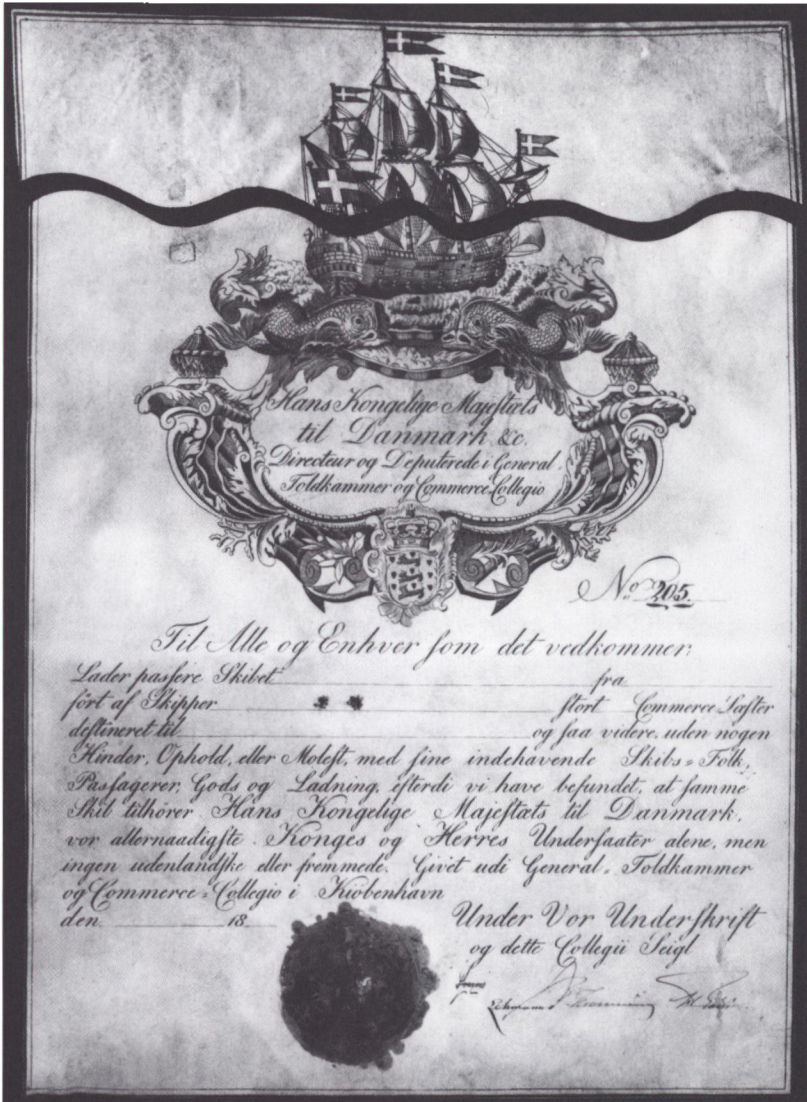 Hans Kongelige Majestæts
til Danmark &c.
Directeur og Deputerede i General-
Toldkammer og Commerce-Collegio
No. 205.
Til Alle og Enhver som det vedkommer:
Lader passere Skibet fra
ført af Skipper stort Commerce-Læster
destineret til og saa videre, uden nogen
Hinder, Ophold, eller Molest, med sine indehavende Skibs-Folk,
Passagerer, Gods og Ladning, efterdi vi have befundet, at samme
Skib tilhører Hans Kongelige Majestæts til Danmark,
vor allernaadigste Konges og Herres Undersaater alene, men
ingen udenlandske eller fremmede. Givet udi General-Toldkammer
og Commerce-Collegio i Kiöbenhavn
den 18
Under Vor Underskrift
og dette Collegii Seigl
Lehmann